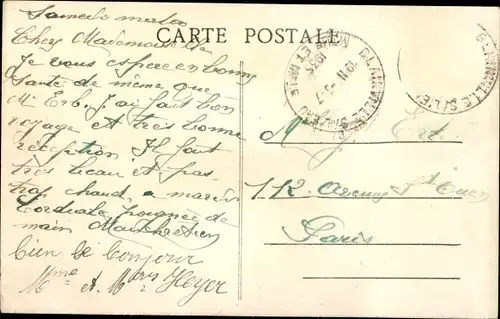 CARTE POSTALE
Samedi matin
Chere Mademoiselle
Je vous espere en bonne
Santé de même que
M. Erb. J'ai fait bon
voyage et très bonne
réception Il fait
très beau et pas
trop chaud. a mardi
Cordiale poignée de
main
bien le bonjour
Mme et Heyer
Erb
112. Avenue St Ouen
Paris